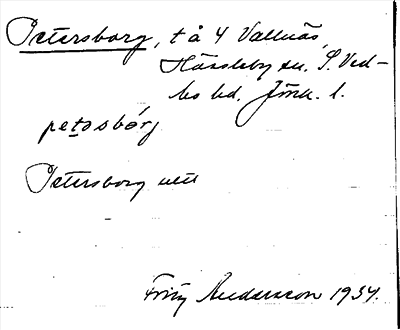 Petersborg, t å 4 Vallnäs,
Hässleby sn. S. Ved-
bo hd. Jönk. l.
petɘsbórj
Petersborg utt
Fritz Andersson 1934.